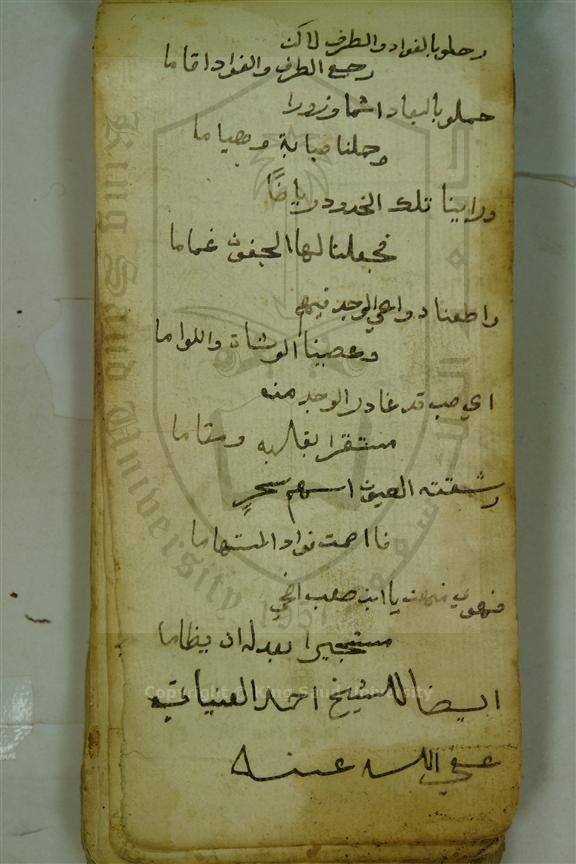 رحلو بالفواد والطرف لاكن
رجع الطرف والفواد اقاما
حملو بالبعاد اثما وزورا
وحملنا صبابة وهياما
وراينا تلك الخدود رياضًا
فجعلنا لها الجفون غماما
واطعنا دواعي الوجد فيهم
وعصينا الوشاة واللواما
اي صب قد غادر الوجد منه
مستقرا بقلبه ومقاما
رشقته العيون اسهم سحرٍ
فااصمت فواد المستهاما
يا ابن صعب
مستجيرا بعدله ان يظاما
ايضا للشيخ احمد العنياتي
عفي الله عنه
King Saud University
1957
Copyright © King Saud University